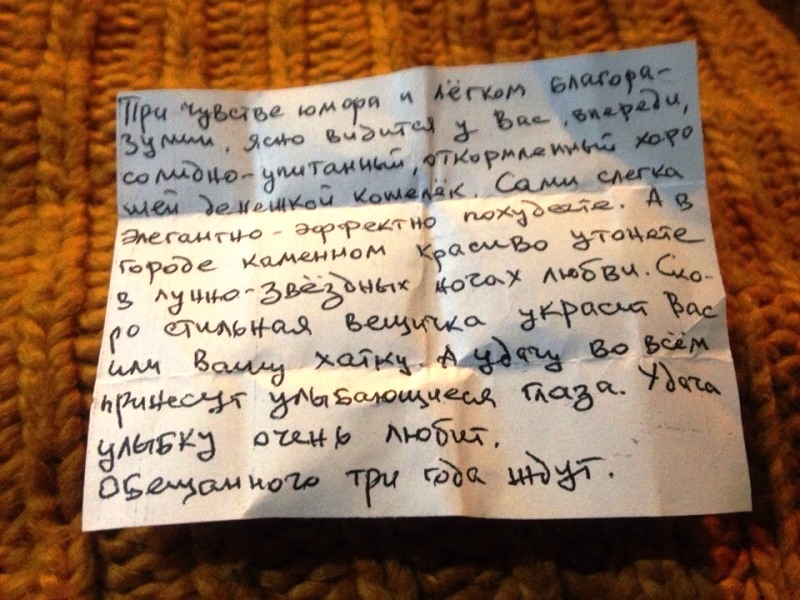 При чувстве юмора и лёгком благора-
зумии, ясно видится у Вас, впереди,
солидно-упитанный, откормленный хоро
шей денежкой кошелёк. Сами слегка
элегантно-эффектно похудеете. А в
городе каменном красиво утонете
в лунно-звёздных ночах любви. Ско-
ро стильная вещичка украсит Вас
или Вашу хатку. А удачу во всём
принесут улыбающиеся глаза. Удача
улыбку очень любит.
Обещанного три года ждут.